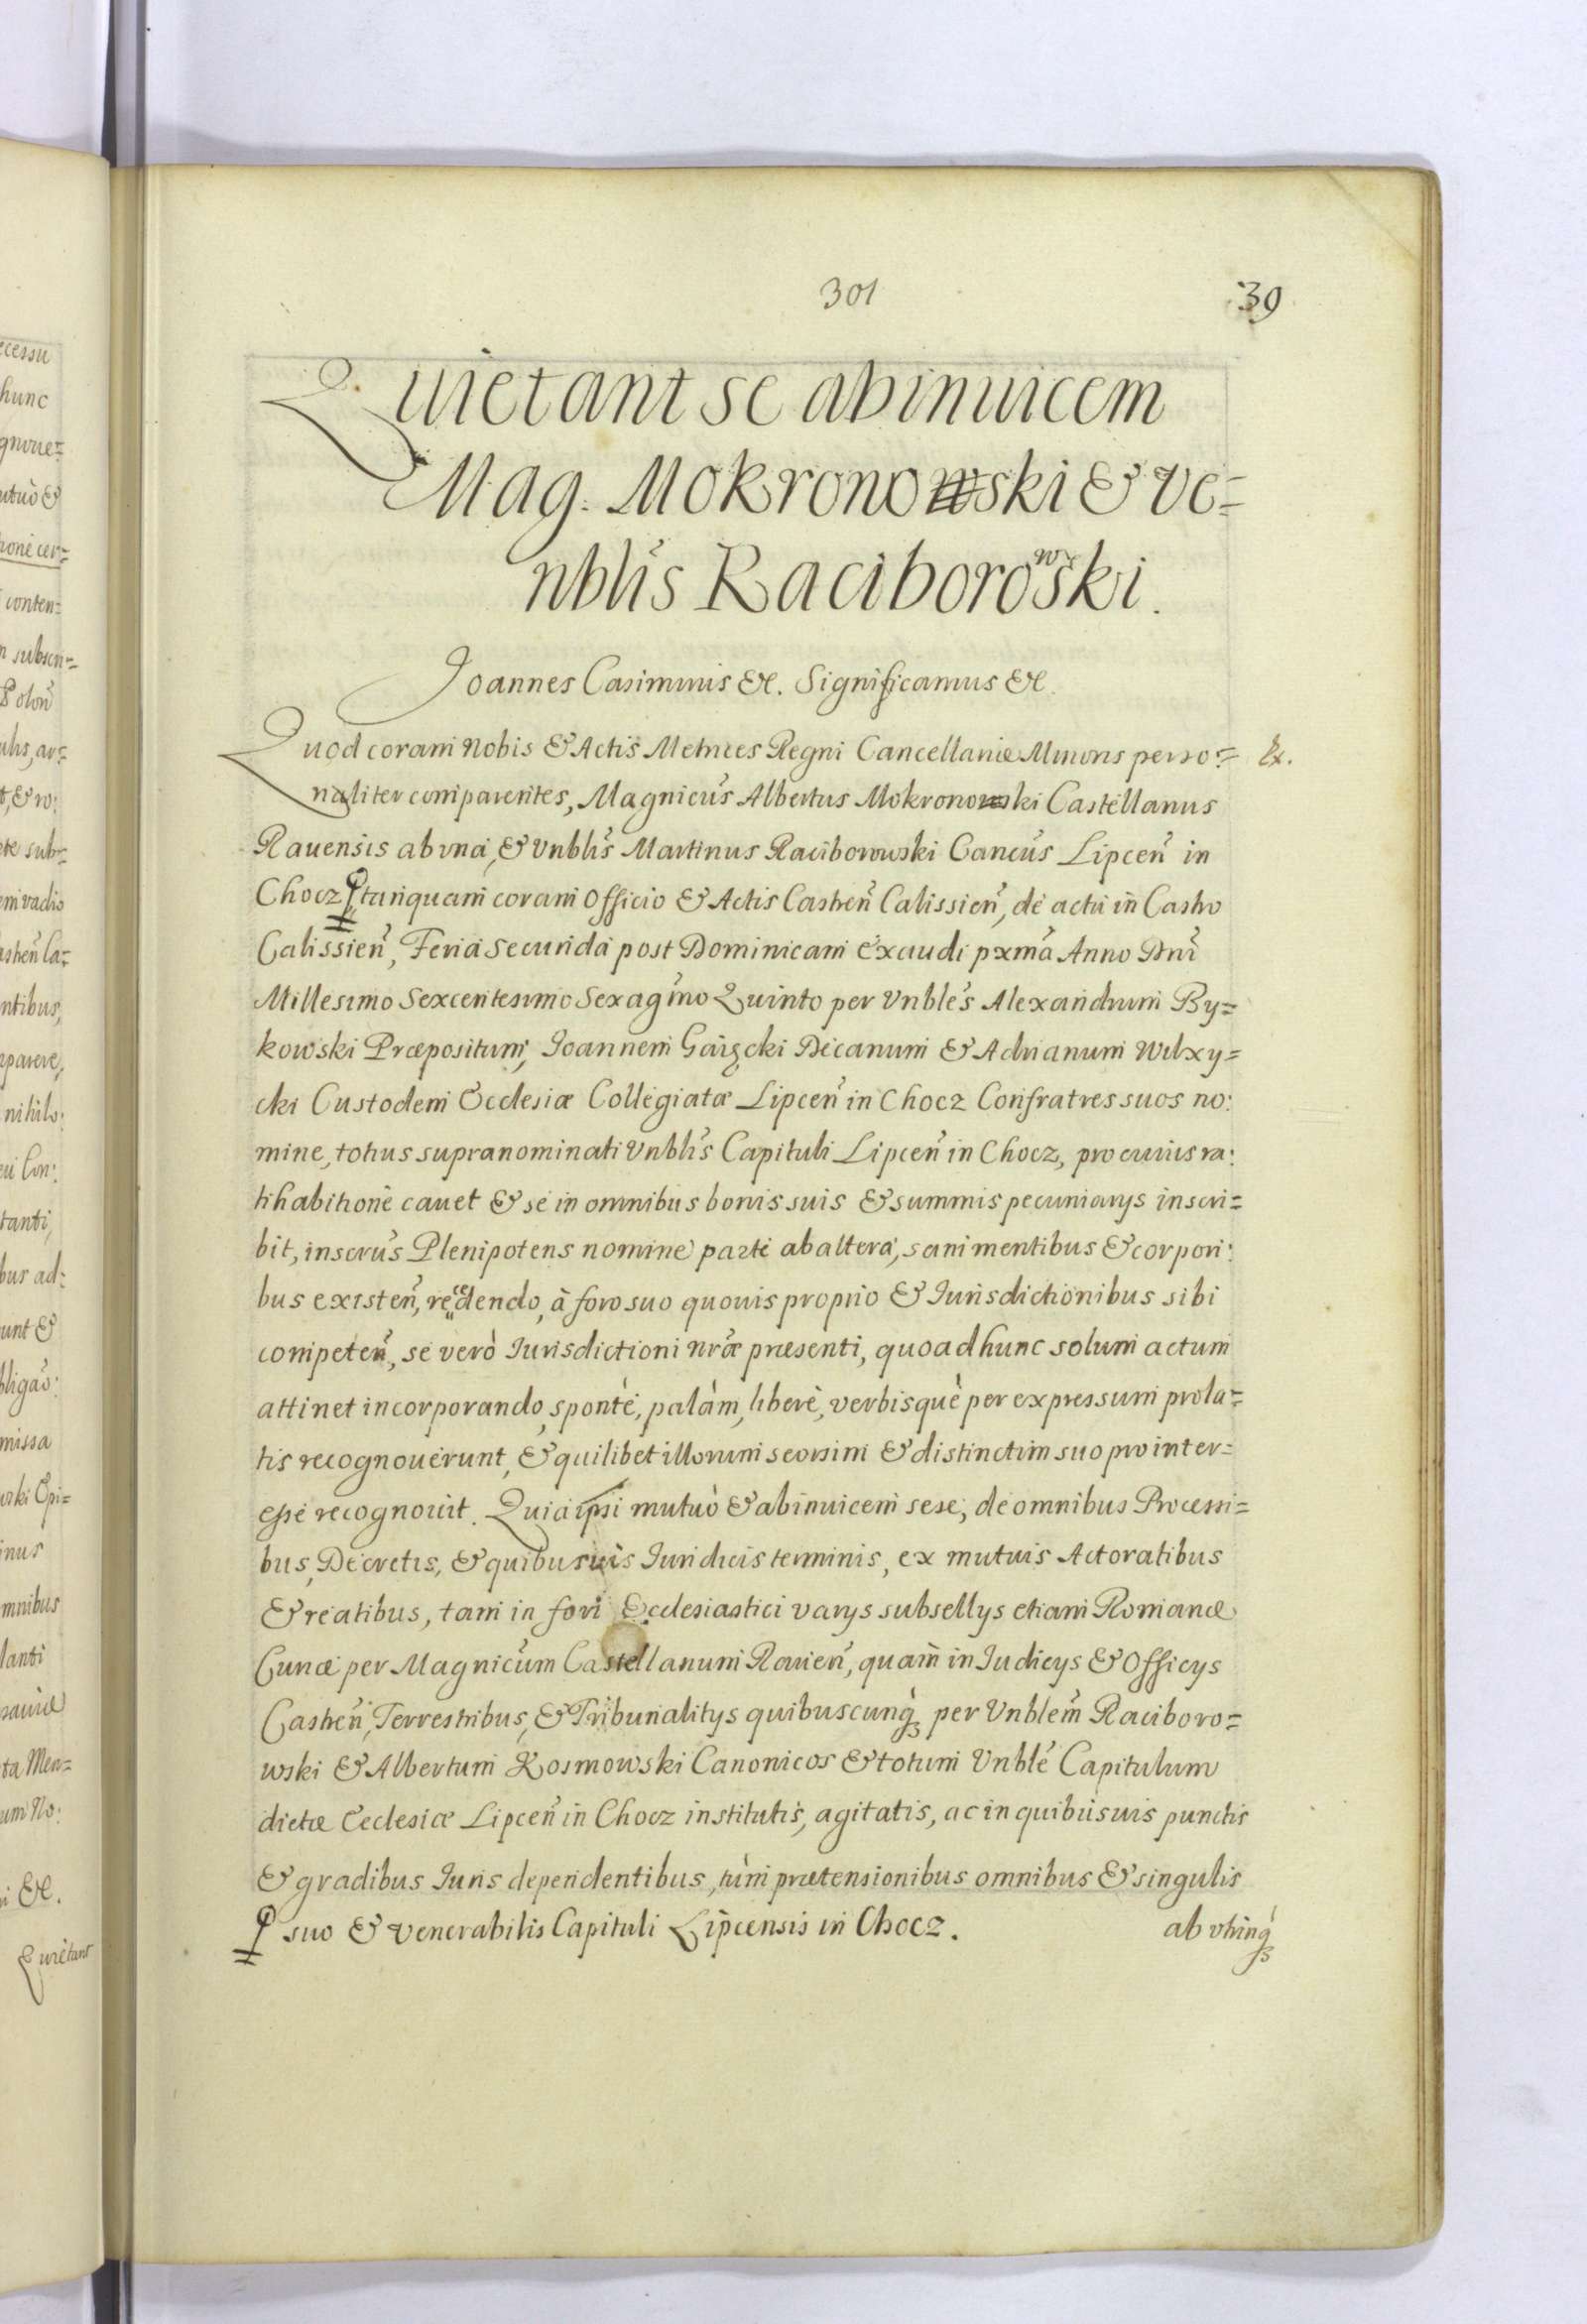 301
39
Quietant se abinuicem
Mag. Mokronowski & Ve=
nblis Raciborowski.
Joannes Casimirus &c. Significamus &c.
Quod coram Nobis & Actis Metrices Regni Cancellariæ Minoris perso=
Ex.
naliter comparentes, Magnicus Albertus Mokronowski Castellanus
Rauensis ab vna, & Vnblis Martinus Raciborowski Cancus Lipcen in
Chocz tanquam coram Officio & Actis Castren Calissien, de actu in Castro
Calissien, Feria Secunda post Dominicam Exaudi pxma Anno Dni
Millesimo Sexcentesimo Sexagmo Quinto per Vnbles Alexandrum By=
kowski Præpositum, Joannem Decanum & Adrianum Wilxy=
cki Custodem Ecclesiæ Collegiatæ Lipcen in Chocz Confratres suos no:
mine, totius supranominati Vnblis Capituli Lipcen in Chocz, pro cuius ra:
tihabitione cauet & se in omnibus bonis suis & summis pecuniarys inscri=
bit, inscrus Plenipotens nomine parte ab altera, sani mentibus & corpori:
bus existen, recedendo, à foro suo quouis proprio & Jurisdictionibus sibi
competen, se verò Jurisdictioni nræ præsenti, quoad hunc solum actum
attinet incorporando, spontè, palàm, liberè, verbisquè per expressum prola=
tis recognouerunt, & quilibet illorum seorsim & distinctim suo pro inter=
esse recognouit. Quia ipsi mutuò & abinuicem sese, de omnibus Processi=
bus, Decretis, & quibusuis Juridicis terminis, ex mutuis Actoratibus
& reatibus, tam in fori Ecclesiastici varys subsellys etiam Romanæ
Curiæ per Magnicum Castellanum Rauien, quam in Judicys & Officys
Castren, Terrestribus, & Tribunalitys quibuscunq per Vnblem Raciboro=
wski & Albertum Kosmowski Canonicos & totum Vnble Capitulum
dictæ Ecclesiæ Lipcen in Chocz institutis, agitatis, ac in quibusuis punctis
& gradibus Juris dependentibus, tùm prætensionibus omnibus & singulis
suo & Venerabilis Capituli Lipcensis in Chocz.
ab vtrinq